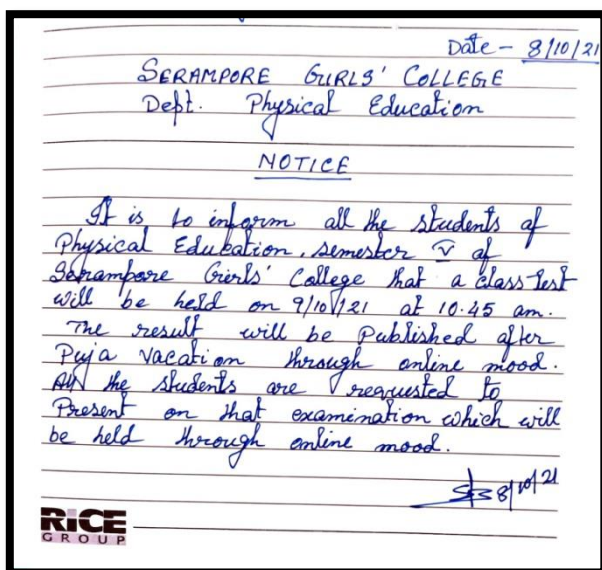 Date - 8/10/21
SERAMPORE GIRLS' COLLEGE
Dept. Physical Education
NOTICE
It is to inform all the students of
Physical Education, semester V of
Serampore Girls' College that a class-test
will be held on 9/10/121 at 10.45 am.
The result will be Published after
Puja vacation through online mood.
All the students are requested to
Present on that examination which will
be held through online mood.
8/10/21
RICE
GROUP